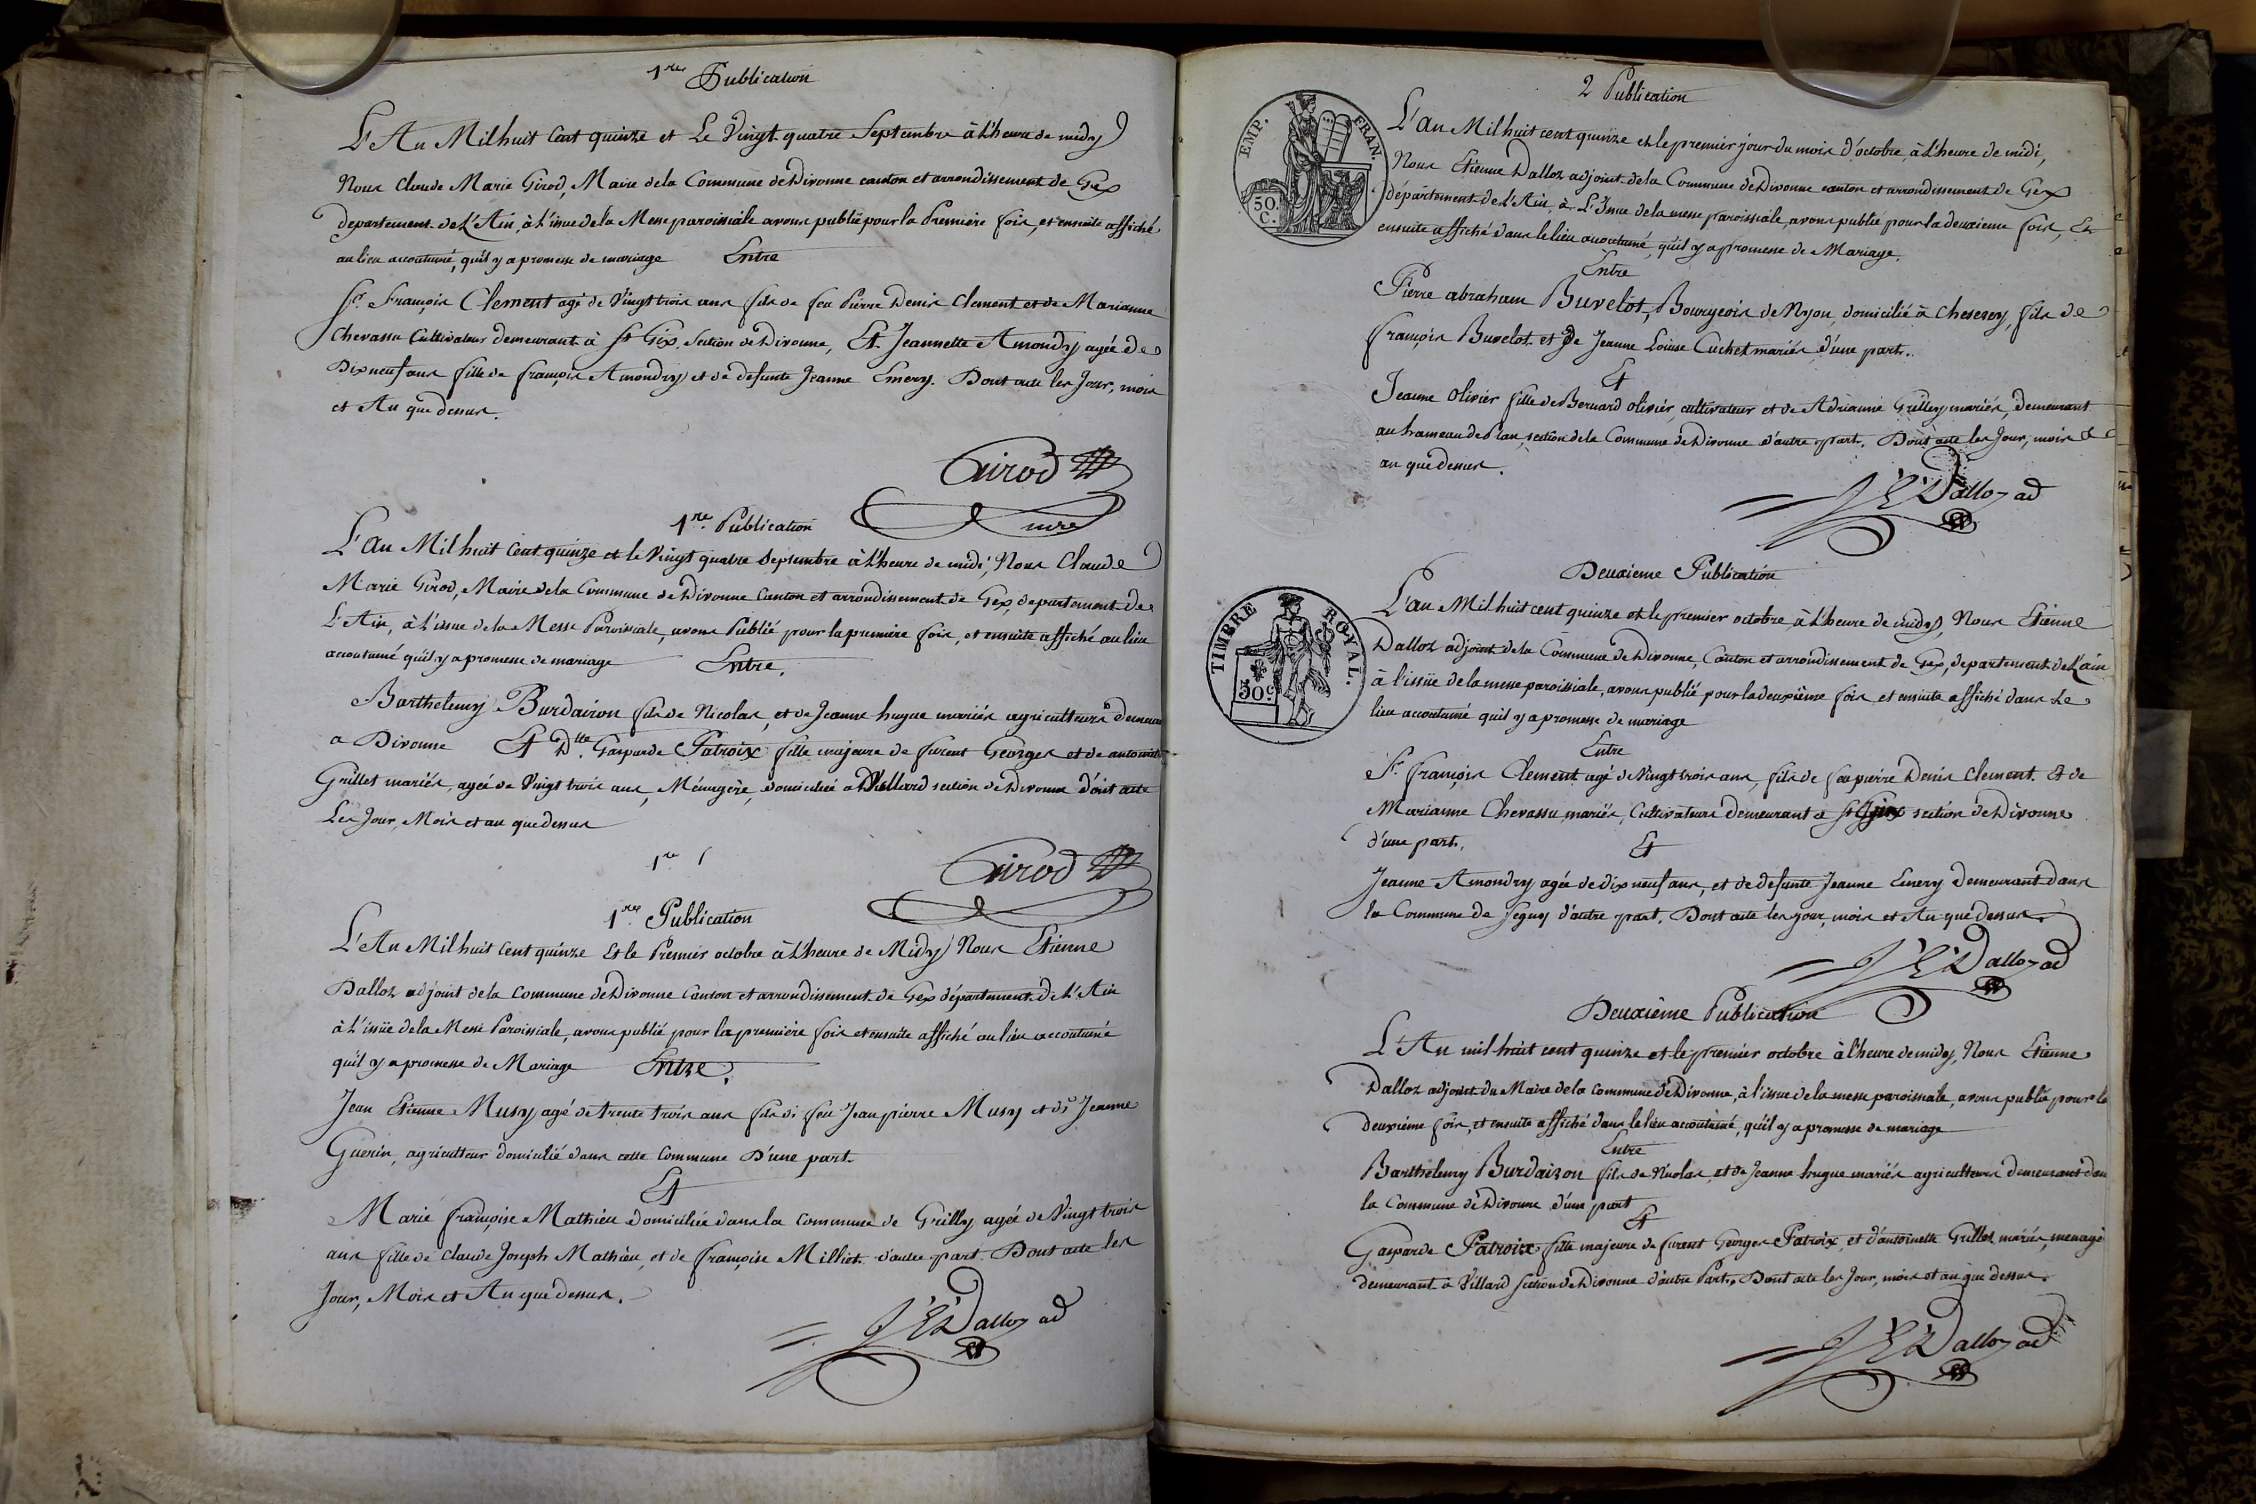 1re Publication
L'An Mil huit Cent quinze et Le Vingt quatre Septembre à L'heure de midy
Nous Claude Marie Girod, Maire de la Commune de Divonne canton et arrondissement de Gex
departement de L'Ain, à l'issue de la Messe paroissiale avons publié pour la Premiere fois, et ensuite affiché
au lieu accoutumé, qu'il y a promesse de mariage Entre
Sr. François Clement agé de Vingt trois ans fils de feu Pierre Denis Clement et de Marianne
Chevassu Cultivateur demeurant à St Gix, Section de Divonne, Et Jeannette Amondry agée de
Dix neuf ans fille de françois Amondry et de defunte Jeanne Emery. Dont acte les Jour, mois
et An que dessus.
Girod
mre
1re Publication
L'an Mil huit Cent quinze et le Vingt quatre Septembre à L'heure de midi, Nous Claude
Marie Girod, Maire de la Commune de Divonne Canton et arrondissement de Gex, departement de
L'Ain, à L'issue de la Messe Paroissiale, avons Publié pour la première fois, et ensuite affiché au lieu
accoutumé qu'il y a promesse de mariage Entre.
Barthelemy Burdairon fils de Nicolas, et de Jeanne hugue mariés agriculteurs
a Divonne Et Dlle Gasparde Patroix fille majeure de furent Georges et de
Grillet mariés, agée de Vingt trois ans, Ménagère, domiciliée a Villard section de Divonne dont acte
Les Jour, Mois et an que dessus
1re
Girod
1re Publication
L'An Mil huit Cent quinze Et le Premier octobre à L'heure de Midy Nous Etienne
Dalloz adjoint de la Commune de Divonne Canton et arrondissement de Gex département de L'Ain
à L'issüe de la Messe Paroissiale, avons publié pour la première fois et ensuite affiché au lieu accoutumé
qu'il y a promesse de Mariage Entre.
Jean Etienne Musy agé de trente trois ans fils de feu Jean pierre Musy et de Jeanne
Guerin, agriculteur domicilié dans cette Commune D'une part
Et
Marie françoise Mathieu domiciliée dans la Commune de Grilly agée de Vingt trois
ans fille de Claude Joseph Mathieu, et de françoise Milliet d'autre part. Dont acte les
Jour, Mois et An que dessus.
J E Dalloz ad
2 Publication
EMP. FRAN.
50.
C.
L'an Mil huit cent quinze et le premier jour du mois d'octobre à L'heure de midi,
Nous Etienne Dalloz adjoint de la Commune de Divonne canton et arrondissement de Gex
département de L'Ain, à L'Issue de la messe paroissiale, avons publié pour la deuxieme fois, Et
ensuite affiché dans le lieu accoutumé, qu'il y a promesse de Mariage.
Entre
Pierre abraham Buvelot, Bourgeois de Nyon, domicilié à Cheserey, fils de
françois Buvelot et de Jeanne Louise Cuchet mariés d'une part.
Et
Jeanne Olivier fille de Bernard olivier, cultivateur et de Adrianne Grilley mariés, demeurant
au hameau de Plan, section de la Commune de Divonne d'autre part. Dont acte les Jour, mois et
an que dessus.
J E Dalloz ad
Deuxieme Publication
TIMBRE ROYAL.
50c
L'an Mil huit cent quinze et le premier octobre à L'heure de midy, Nous Etienne
Dalloz adjoint de la Commune de Divonne, Canton et arrondissement de Gex, departement de L'ain
à l'issüe de la messe paroissiale, avons publié pour la deuxième fois et ensuite affiché dans Le
lieu accoutumé qu'il y a promesse de mariage
Entre
Sr. françois Clement agé de Vingt trois ans, fils de feu pierre Denis Clement. Et de
Marianne Chevassu mariés, Cultivateurs demeurant a St section de Divonne
d'une part.
Et
Jeanne Amondry agée de dix neuf ans, et de defunte Jeanne Emery demeurant dans
la Commune de Segny d'autre part. Dont acte les jour, mois et An que dessus.
J E Dalloz ad
Deuxième Publication
L'An mil huit cent quinze et le premier octobre à l'heure de midy, Nous Etienne
Dalloz adjoint du Maire de la commune de Divonne, à l'issue de la messe paroissiale, avons publié pour la
deuxième fois, et ensuite affiché dans le lieu accoutumé, qu'il y a promesse de mariage
Entre
Barthelemy Burdairon fils de Nicolas, et de Jeanne hugue mariés agriculteurs demeurant dans
la Commune de Divonne d'une part
Et
Gasparde Patroix fille majeure de furent Georges Patroix, et d'antoinette Grillet mariés,
demeurant à Villard section de Divonne d'autre Part, Dont acte les Jour, mois et an que dessus.
J E Dalloz ad